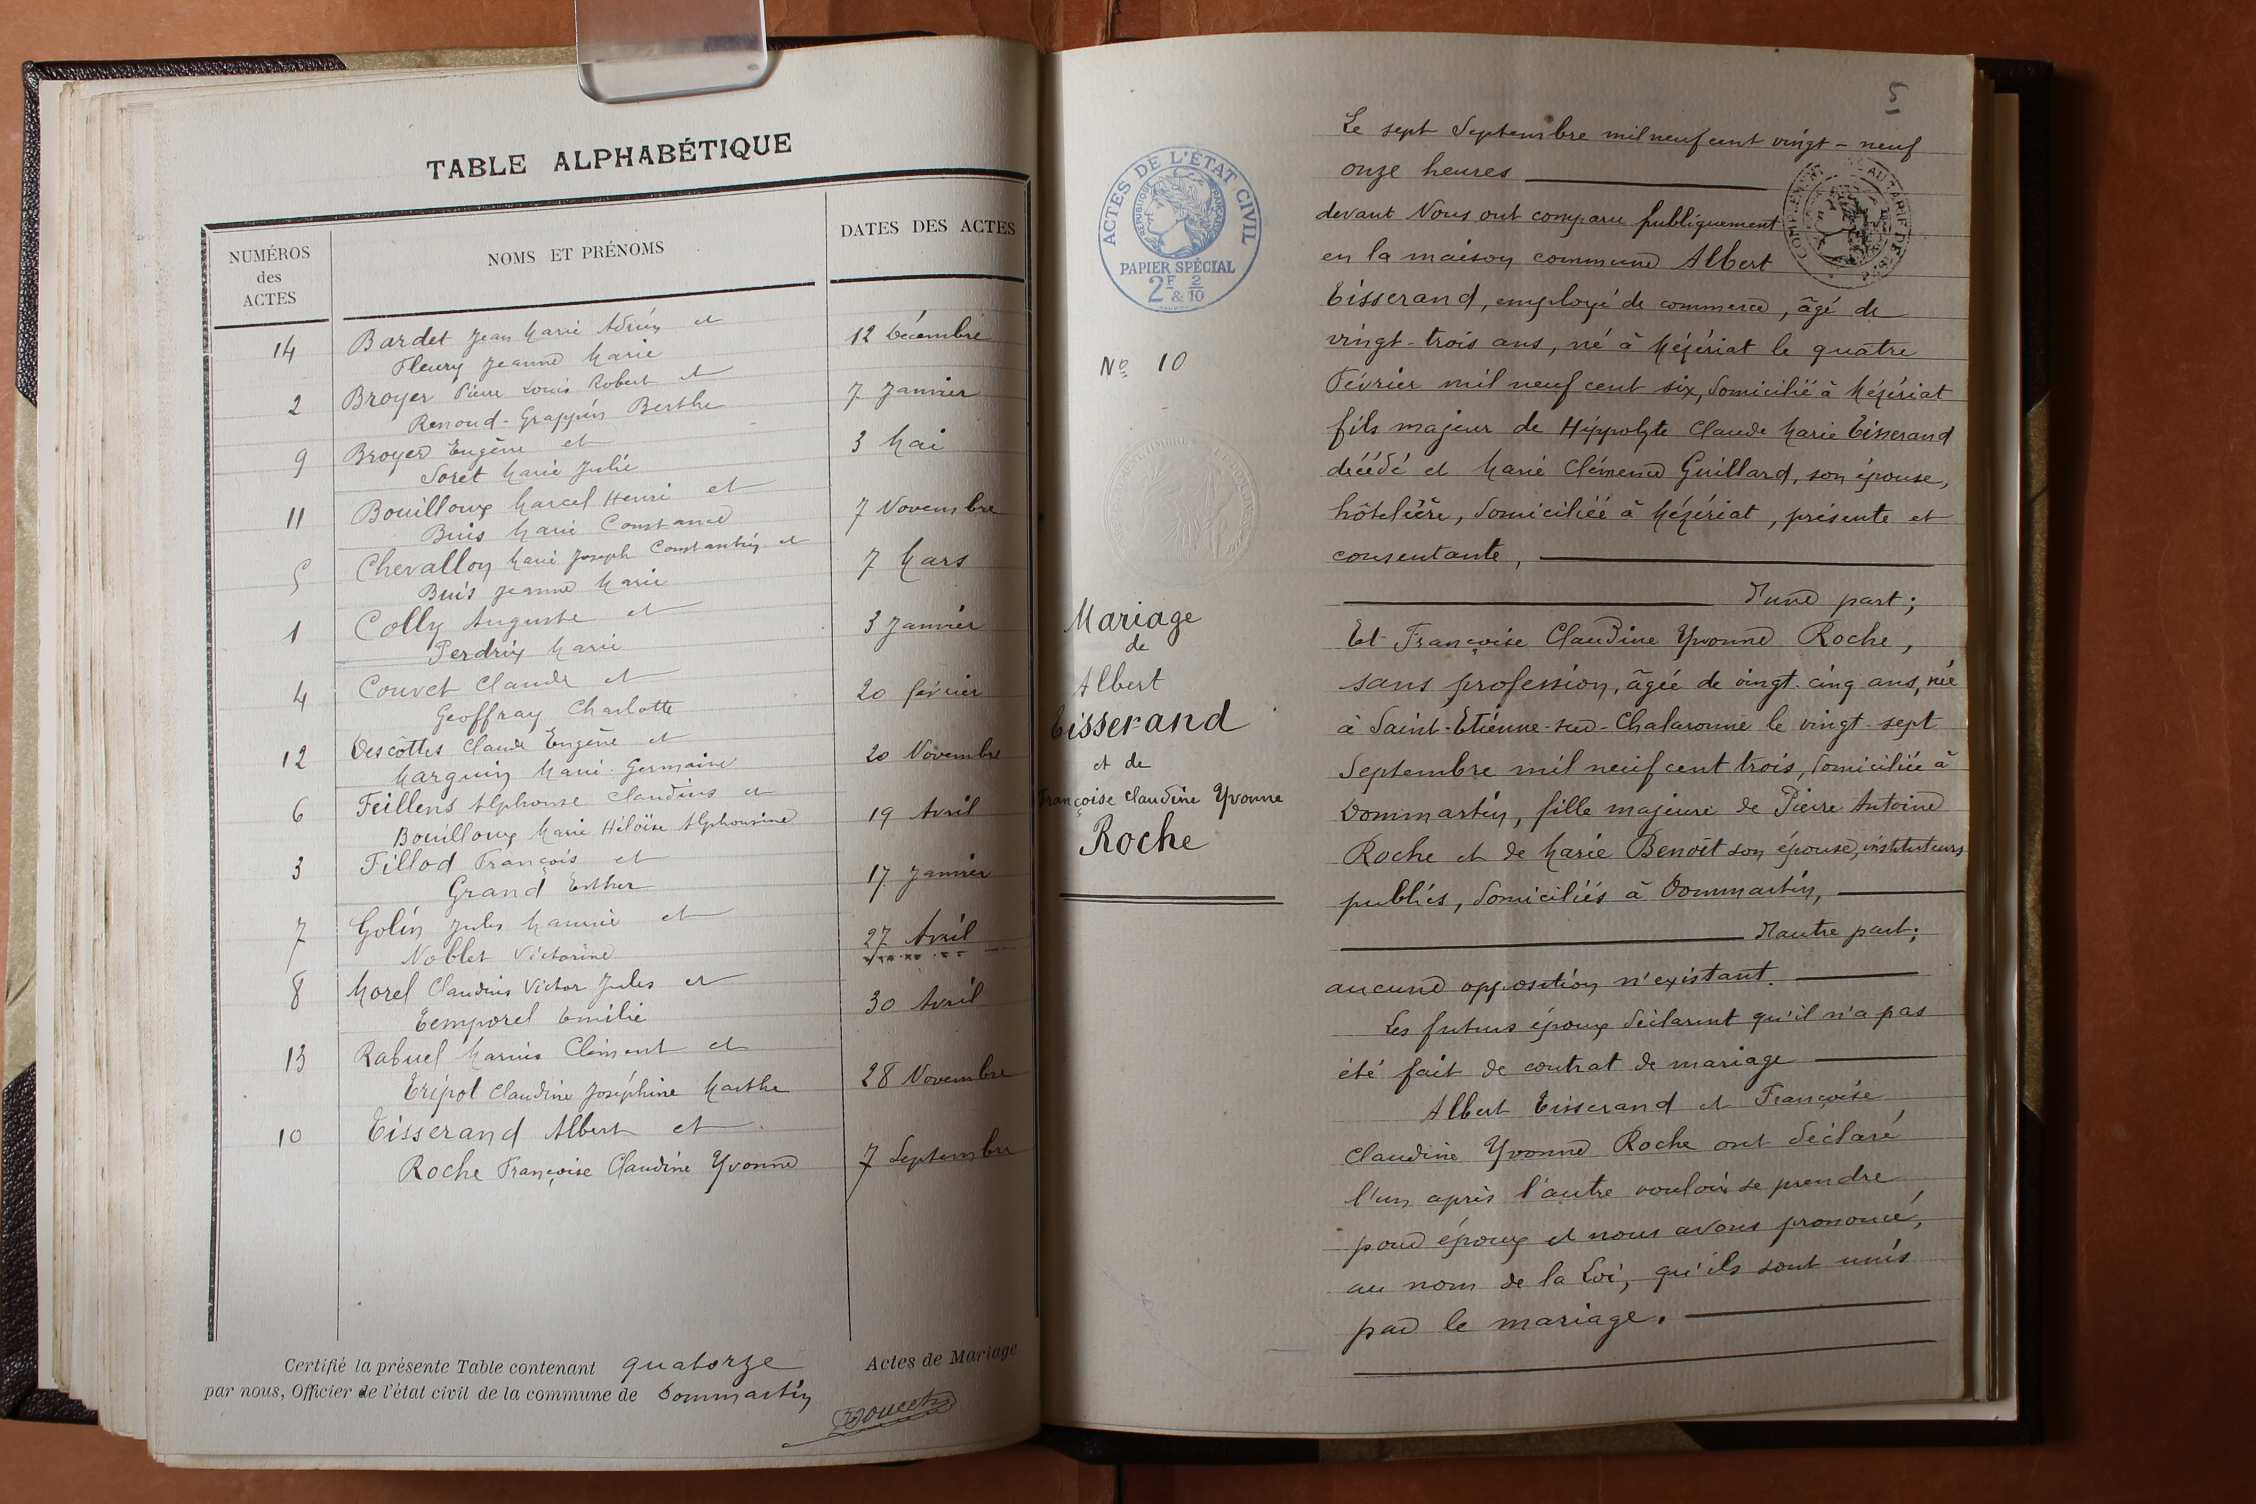 TABLE ALPHABÉTIQUE
NUMÉROS
des
ACTES
NOMS ET PRÉNOMS
DATES DES ACTES
14 Bardet Jean Marie Adrien et 12 Décembre
Fleury Jeanne Marie
2 Broyer Pierre Louis Robert et 7 Janvier
Renoud-Grappin Berthe
9 Broyer Eugène et 3 Mai
Soret Marie Julie
11 Bouilloux Marcel Henri et 7 Novembre
Buis Marie Constance
5 Chevallon Marie Joseph Constantin et 7 Mars
Buis Jeanne Marie
1 Colly Auguste et 3 Janvier
Perdrix Marie
4 Couvet Claude et 20 février
Geoffray Charlotte
12 Descôttes Claude Eugène et 20 Novembre
Marguin Marie Germaine
6 Feillens Alphonse Claudius et 19 Avril
Bouilloux Marie Héloïse Alphonsine
3 Fillod François et 17 Janvier
Grand Esther
7 Golin Jules Maurice et 27 Avril
Noblet Victorine
8 Morel Claudius Victor Jules et 30 Avril
Temporel Emilie
13 Rabuel Marius Clément et 28 Novembre
Tripot Claudine Joséphine Marthe
10 Tisserand Albert et
Roche Françoise Claudine Yvonne 7 Septembre
Certifié la présente Table contenant quatorze Actes de Mariage
par nous, Officier de l'état civil de la commune de Dommartin
ACTES DE L'ÉTAT CIVIL
RÉPUBLIQUE FRANÇAISE
PAPIER SPÉCIAL
2F & 2/10
No 10
Mariage
de
Albert
Tisserand
et de
Françoise Claudine Yvonne
Roche
5
Le sept Septembre mil neuf cent vingt-neuf
onze heures
devant Nous ont comparu publiquement
en la maison commune Albert
Tisserand, employé de commerce, âgé de
vingt-trois ans, né à Mézériat le quatre
Février mil neuf cent six, domicilié à Mézériat
fils majeur de Hippolyte Claude Marie Tisserand
décédé et Marie Clémence Guillard, son épouse,
hôtelière, domiciliée à Mézériat, présente et
consentante,
d'une part;
Et Françoise Claudine Yvonne Roche,
sans profession, âgée de vingt-cinq ans, née
à Saint-Etienne-sur-Chalaronne le vingt-sept
Septembre mil neuf cent trois, domiciliée à
Dommartin, fille majeure de Pierre Antoine
Roche et de Marie Benoît son épouse, instituteurs
publics, domiciliés à Dommartin,
d'autre part;
aucune opposition n'existant.
Les futurs époux déclarent qu'il n'a pas
été fait de contrat de mariage
Albert Tisserand et Françoise
Claudine Yvonne Roche ont déclaré
l'un après l'autre vouloir se prendre
pour époux et nous avons prononcé,
au nom de la Loi, qu'ils sont unis
par le mariage.